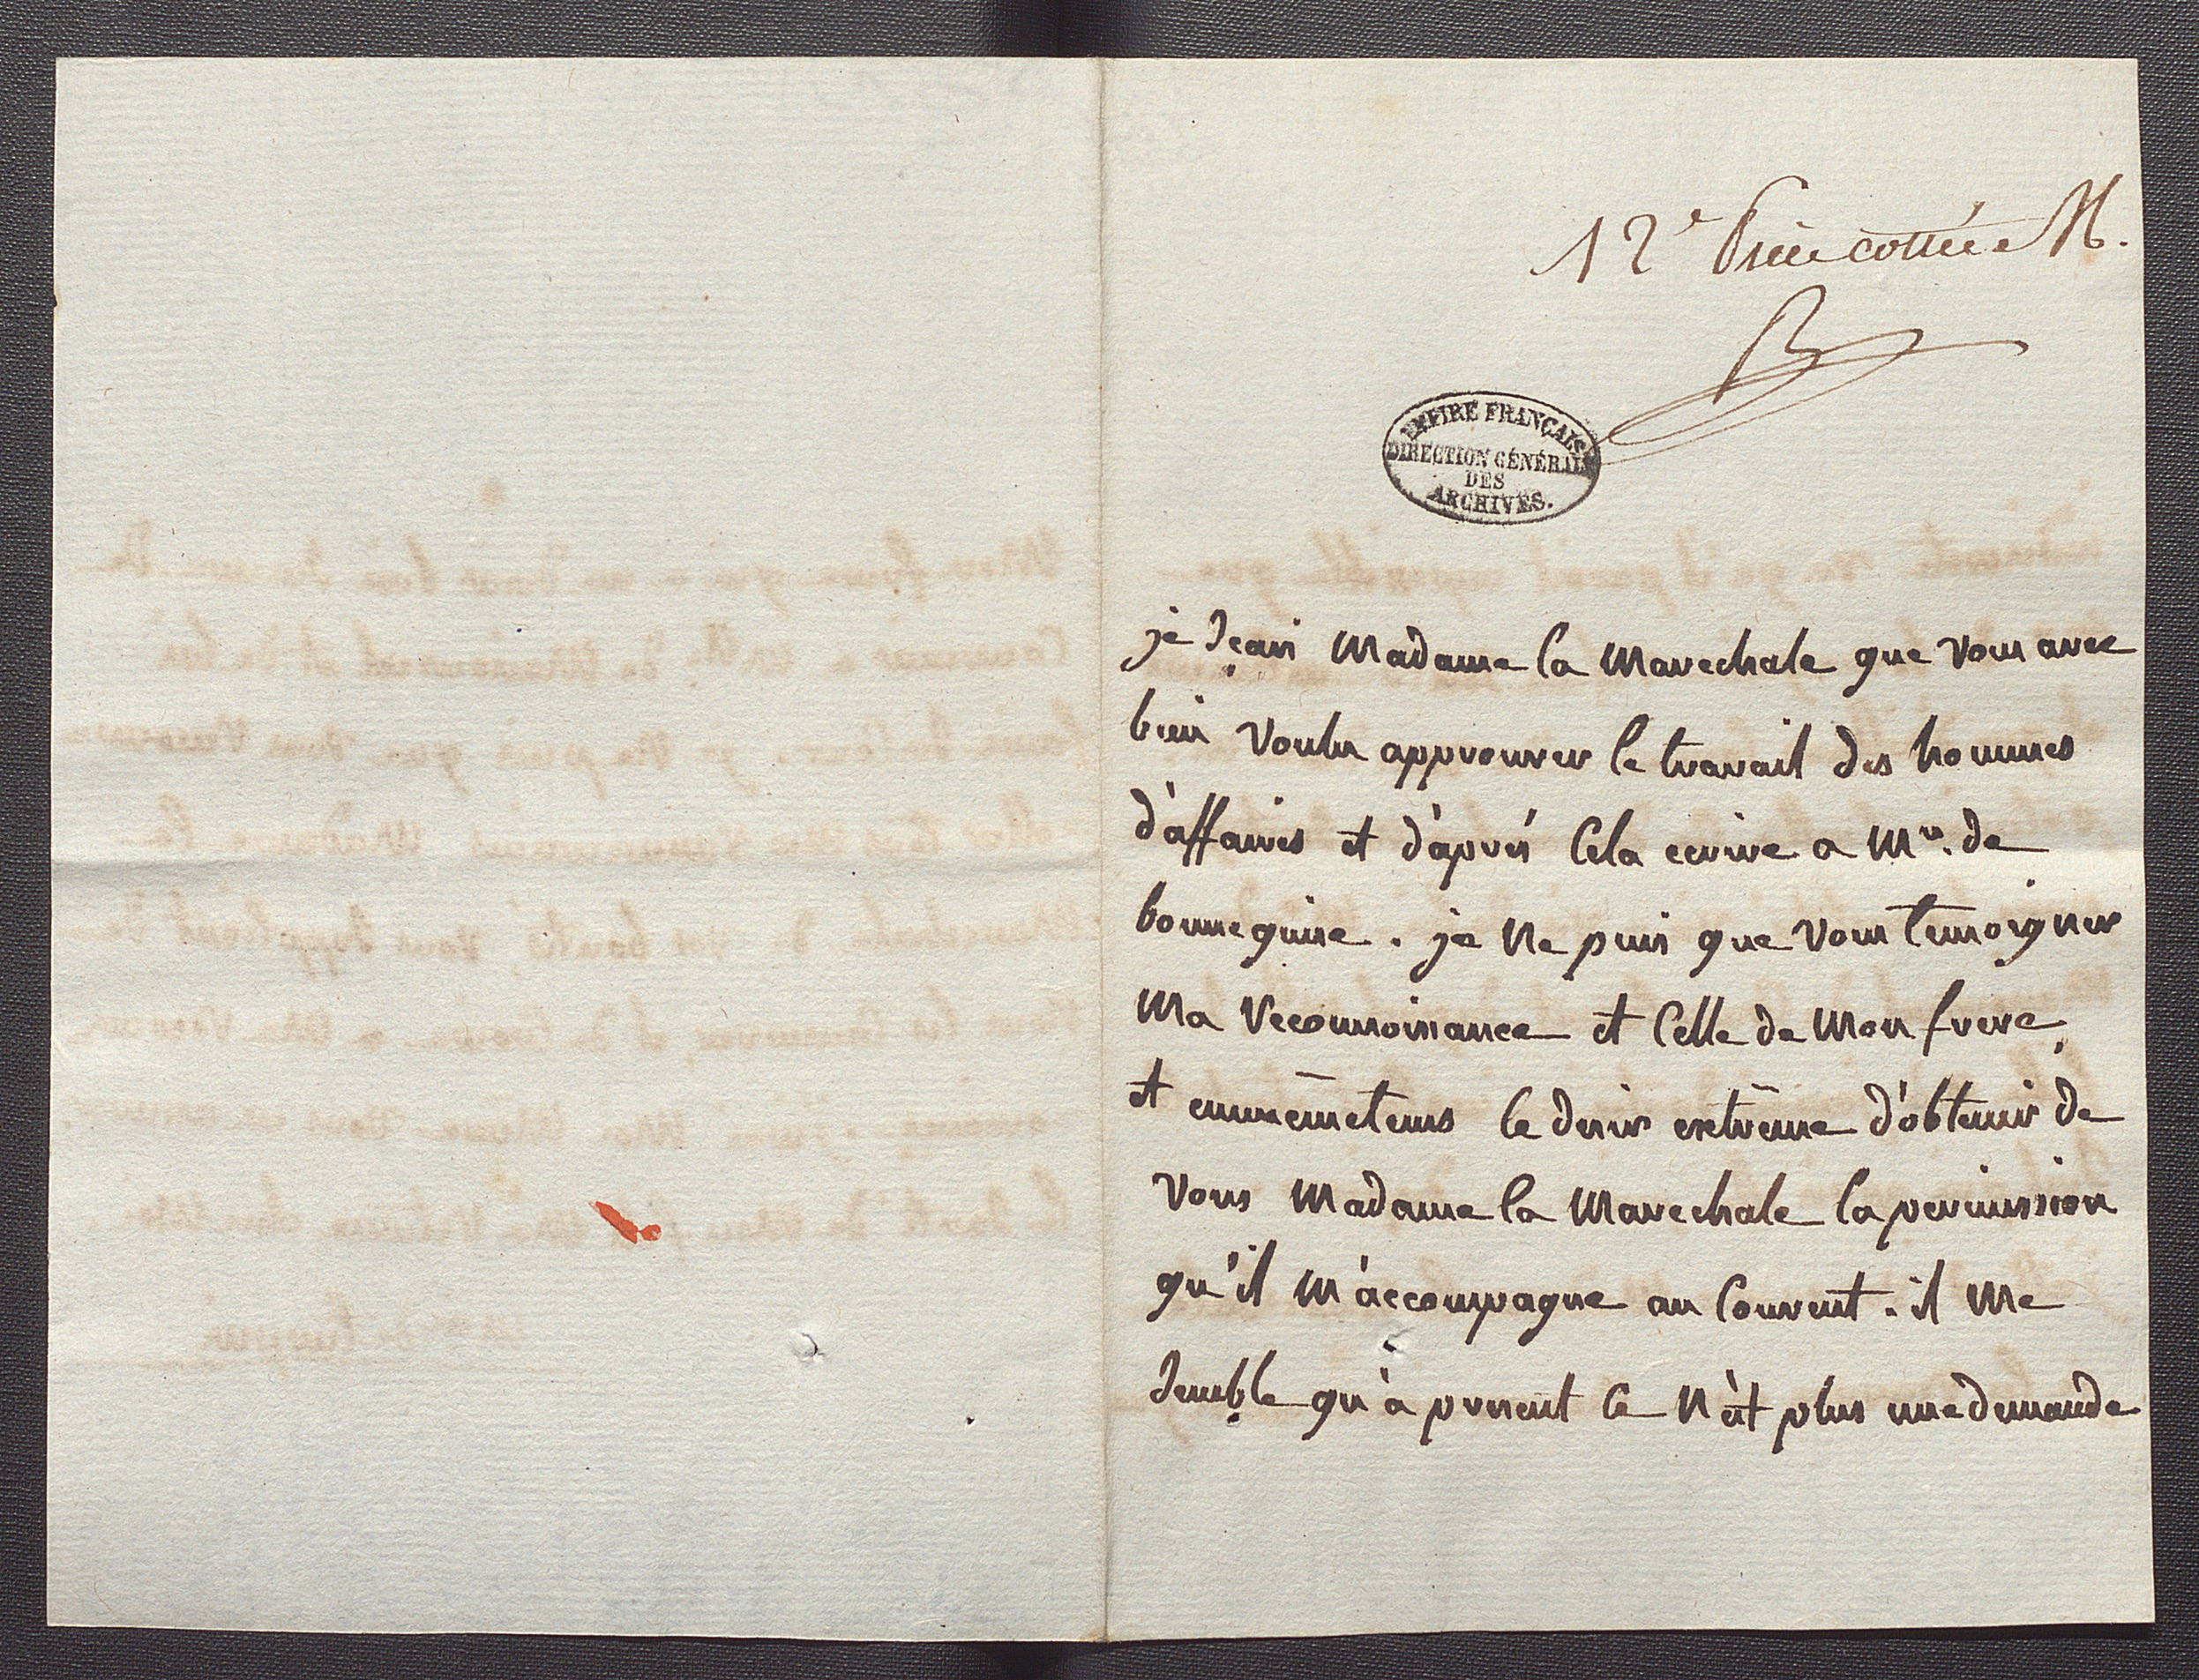 12e Piece cottée M.
EMPIRE FRANÇAIS
DIRECTION GÉNÉRALE
DES
ARCHIVES.
je sçais Madame la Marechale que vous avez
bien voulu approuver le travail des hommes
d'affaires et d'après cela ecrire a Mr. de
bonneguise. je ne puis que vous temoigner
Ma reconnoissance et celle de Mon frere,
et enmêmetems le desir extrême d'obtenir de
vous Madame la Marechale la permission
qu'il M'accompagne au Couvent. il Me
semble qu'a present ce n'est plus une demande